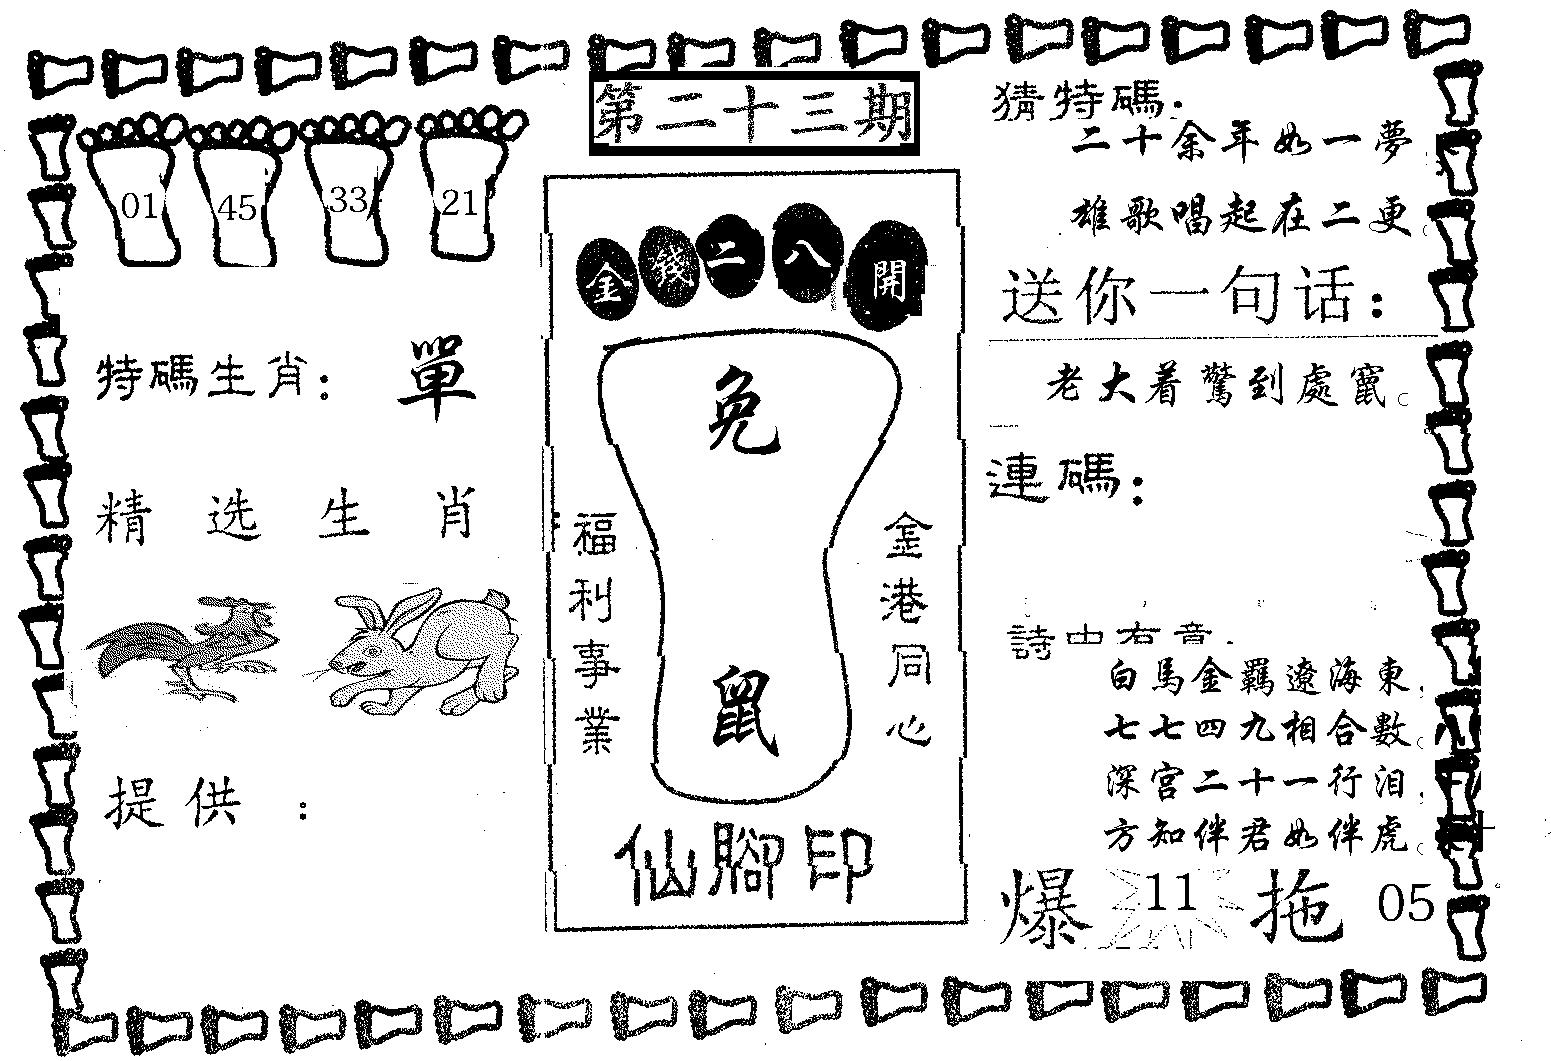 第二十三期
01 45 33 21
特碼生肖： 單
精选生肖
提供：
金錢二八開
兔
鼠
福利事業
金港同心
仙腳印
猜特碼：
二十余年如一夢
雄歌唱起在二更。
送你一句话：
老大着驚到處竄。
連碼：
詩中有意：
白馬金羈遼海東，
七七四九相合數。
深宫二十一行泪，
方知伴君如伴虎。
爆 11 拖 05